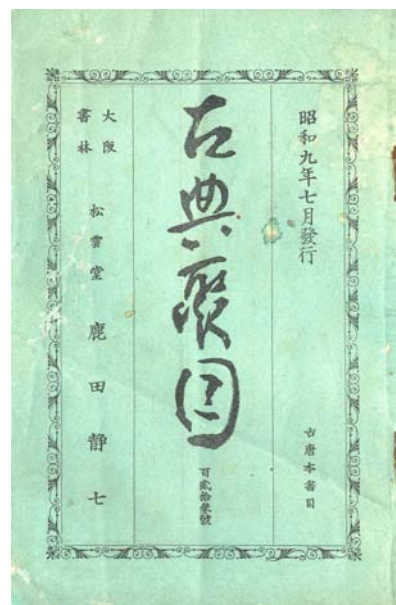 昭和九年七月發行
古唐本書目
古典聚目
百貳拾參號
大阪
書林
松雲堂
鹿田靜七